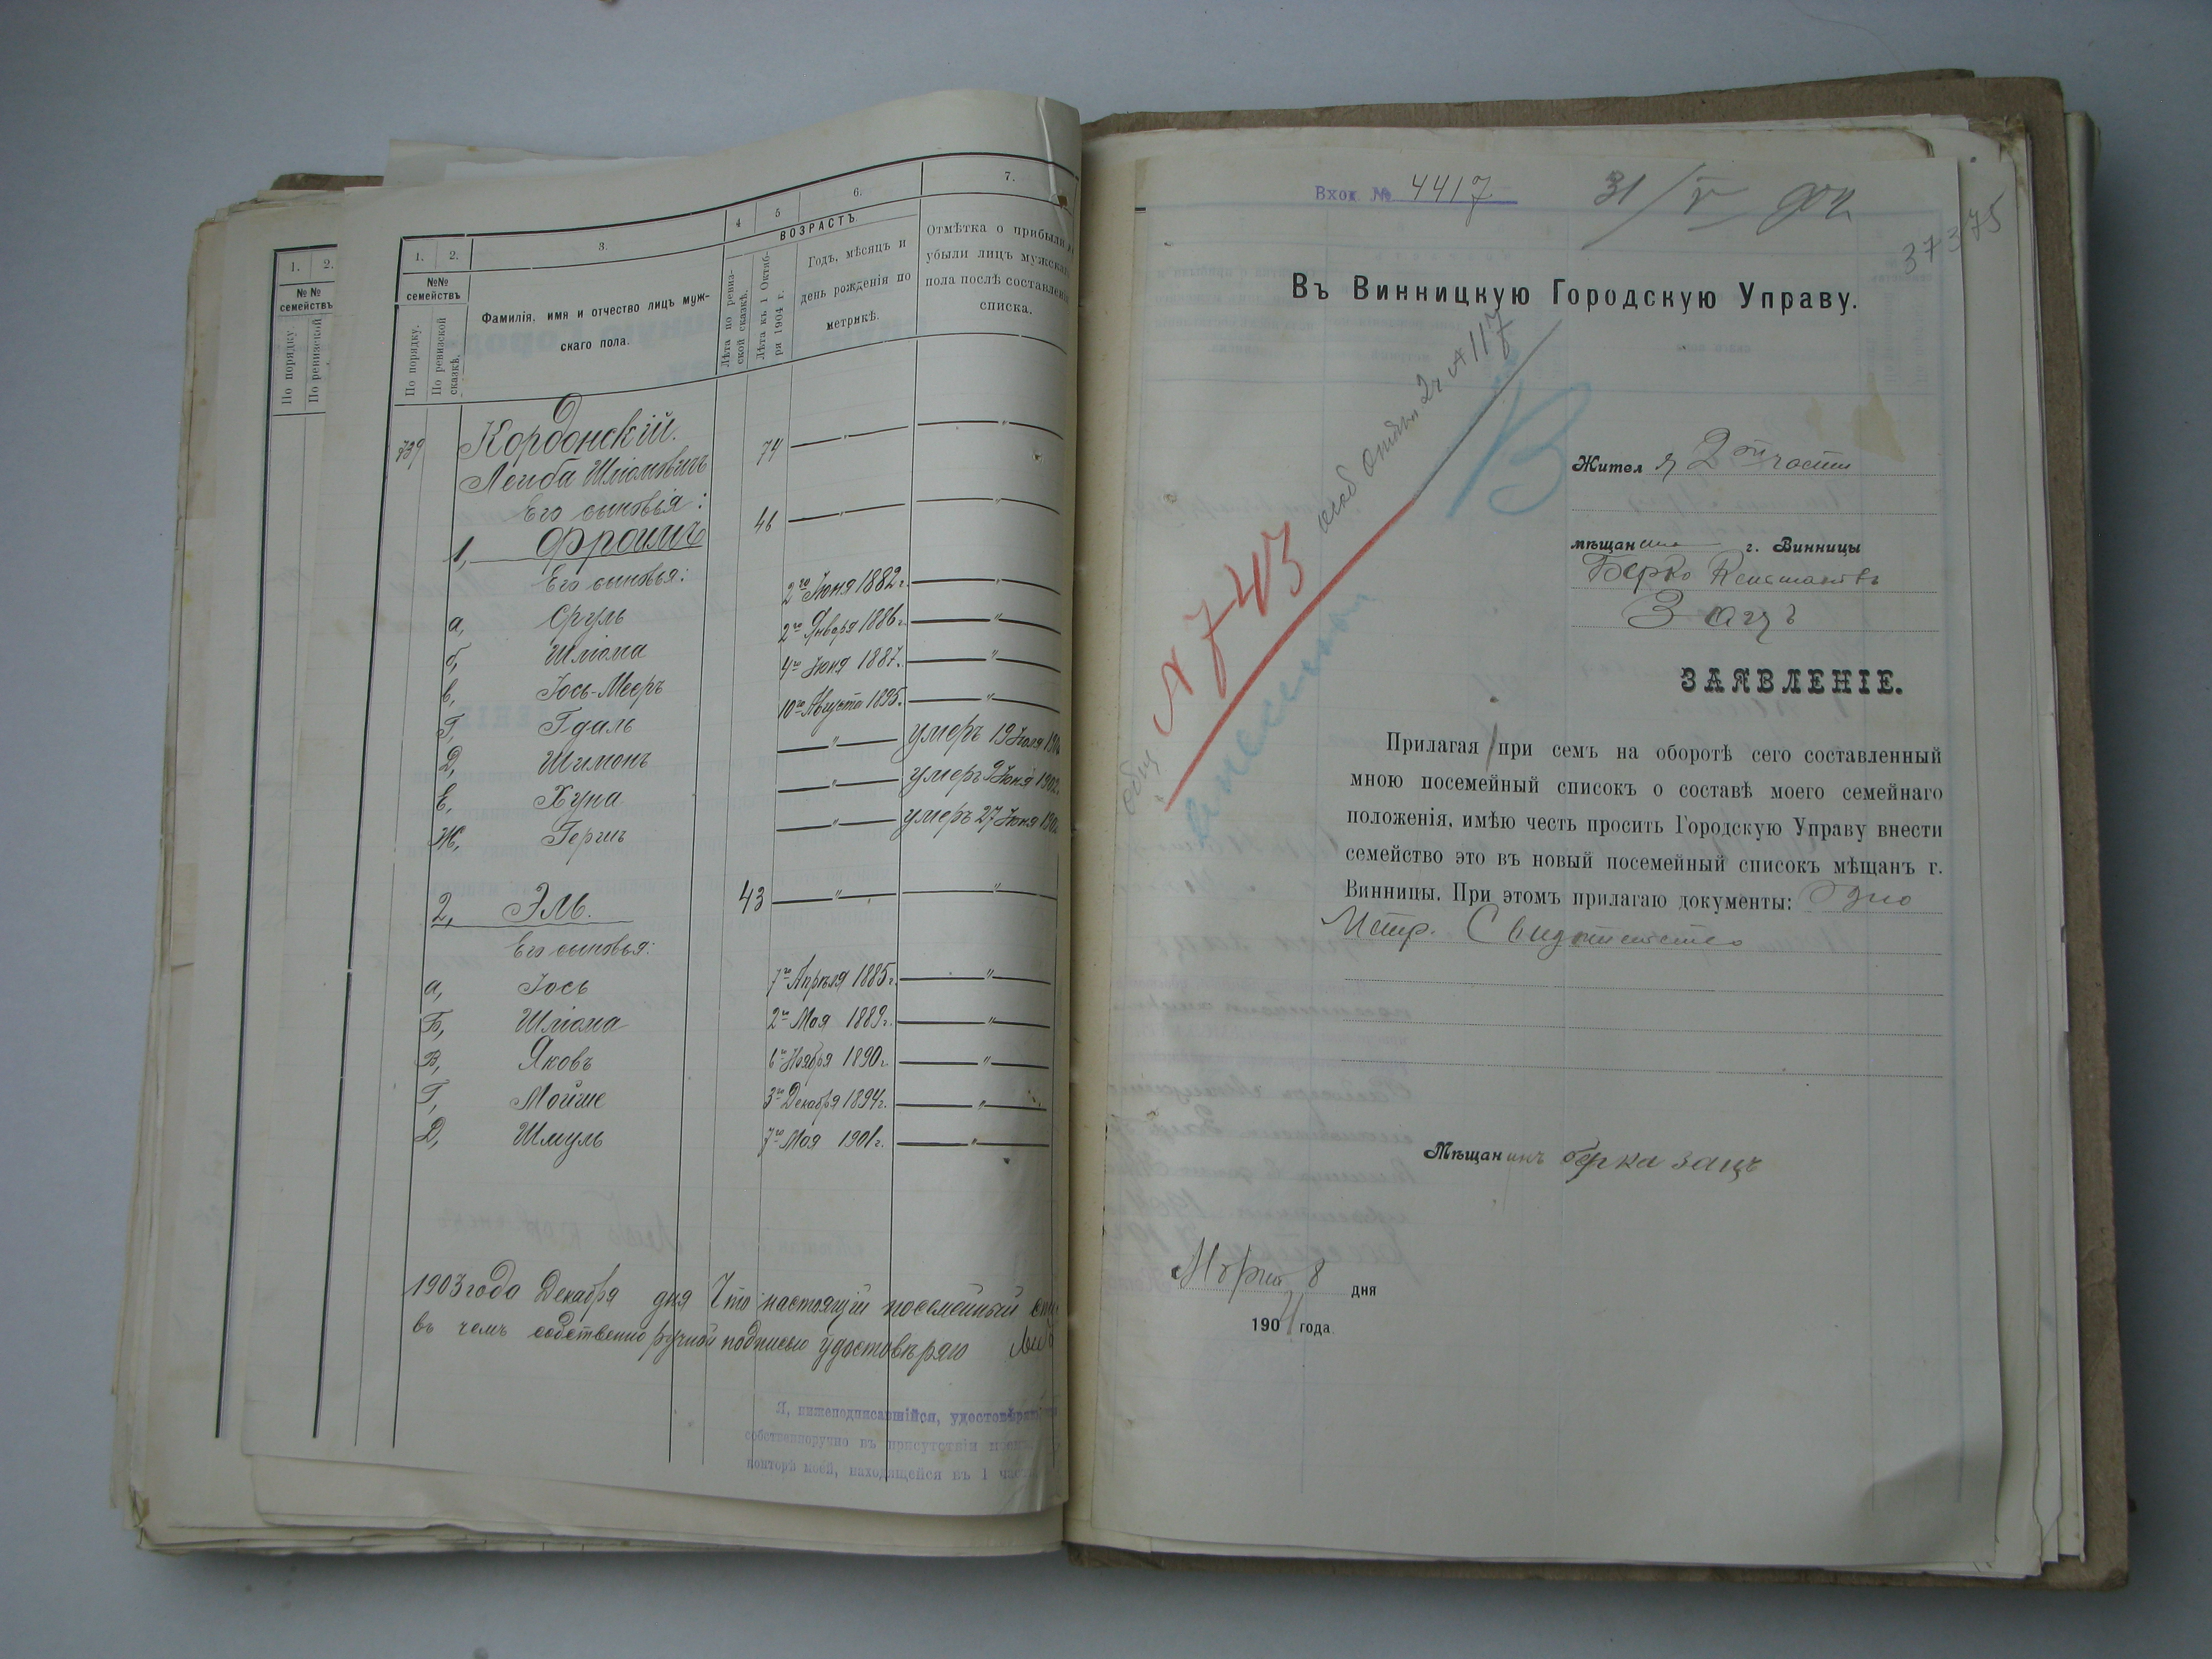 1.
2.
№ №
семействъ
По порядку
По ревизской
1.
2.
3.
4
5
6.
7.
№№
семействъ
По порядку.
По ревизской
сказкѣ.
Фамилія, имя и отчество лицъ муж-
скаго пола.
ВОЗРАСТЪ.
Лѣта по ревиз-
ской сказкѣ.
Лѣта къ 1 Октяб-
ря 1904 г.
Годъ, мѣсяцъ и
день рожденія по
метрикѣ.
Отмѣтка о прибыли
убыли лицъ мужска
пола послѣ составлені
списка.
739 Кордонскій.
Лейба Шліомовичъ 74 — " — — " —
Его сыновія:
1, Фроимъ 46 — " — — " —
Его сыновья:
а, Сруль 2го Іюня 1882 г. — " —
б, Шліома 2го Января 1886 г. — " —
в, Іось-Меръ 4го Іюня 1887. — " —
Г, Гдаль 10го Августа 1895. — " —
Д, Шимонъ — " — умеръ 19 Іюля
Е, Хуна — " — умеръ 9 Іюня 1902
Ж, Гершъ — " — умеръ 27 Іюня
2, Эль. 43 — " — — " —
Его сыновья:
а, Іось 7го Апрѣля 1885 г. — " —
Б, Шліома 2го Мая 1889 г. — " —
В, Яковъ 6го Ноября 1890 г. — " —
Г, Мойше 3го Декабря 1894 г. — " —
Д, Шмуль 7го Мая 1901 г. — " —
1903 года Декабря дня Что настоящій посемейный
въ чемъ собственно ручной подписью удостовѣряю
Я, нижеподписавшійся, удостовѣряю
собственноручно въ присутствіи моемъ
конторѣ моей, находящейся въ 1 час
Вход. № 4417
31/V 904
37375
Въ Винницкую Городскую Управу.
№ 117
В
№ 743
Жителя 2й части
мѣщанина г. Винницы
Берко
Зацъ
ЗАЯВЛЕНІЕ.
Прилагая при семъ на оборотѣ сего составленный
мною посемейный списокъ о составѣ моего семейнаго
положенія, имѣю честь просить Городскую Управу внести
семейство это въ новый посемейный списокъ мѣщанъ г.
Винницы. При этомъ прилагаю документы: Одно
Метр. Свидѣтельство
Мѣщанинъ берка зацъ
Марта 8 дня
1904 года.